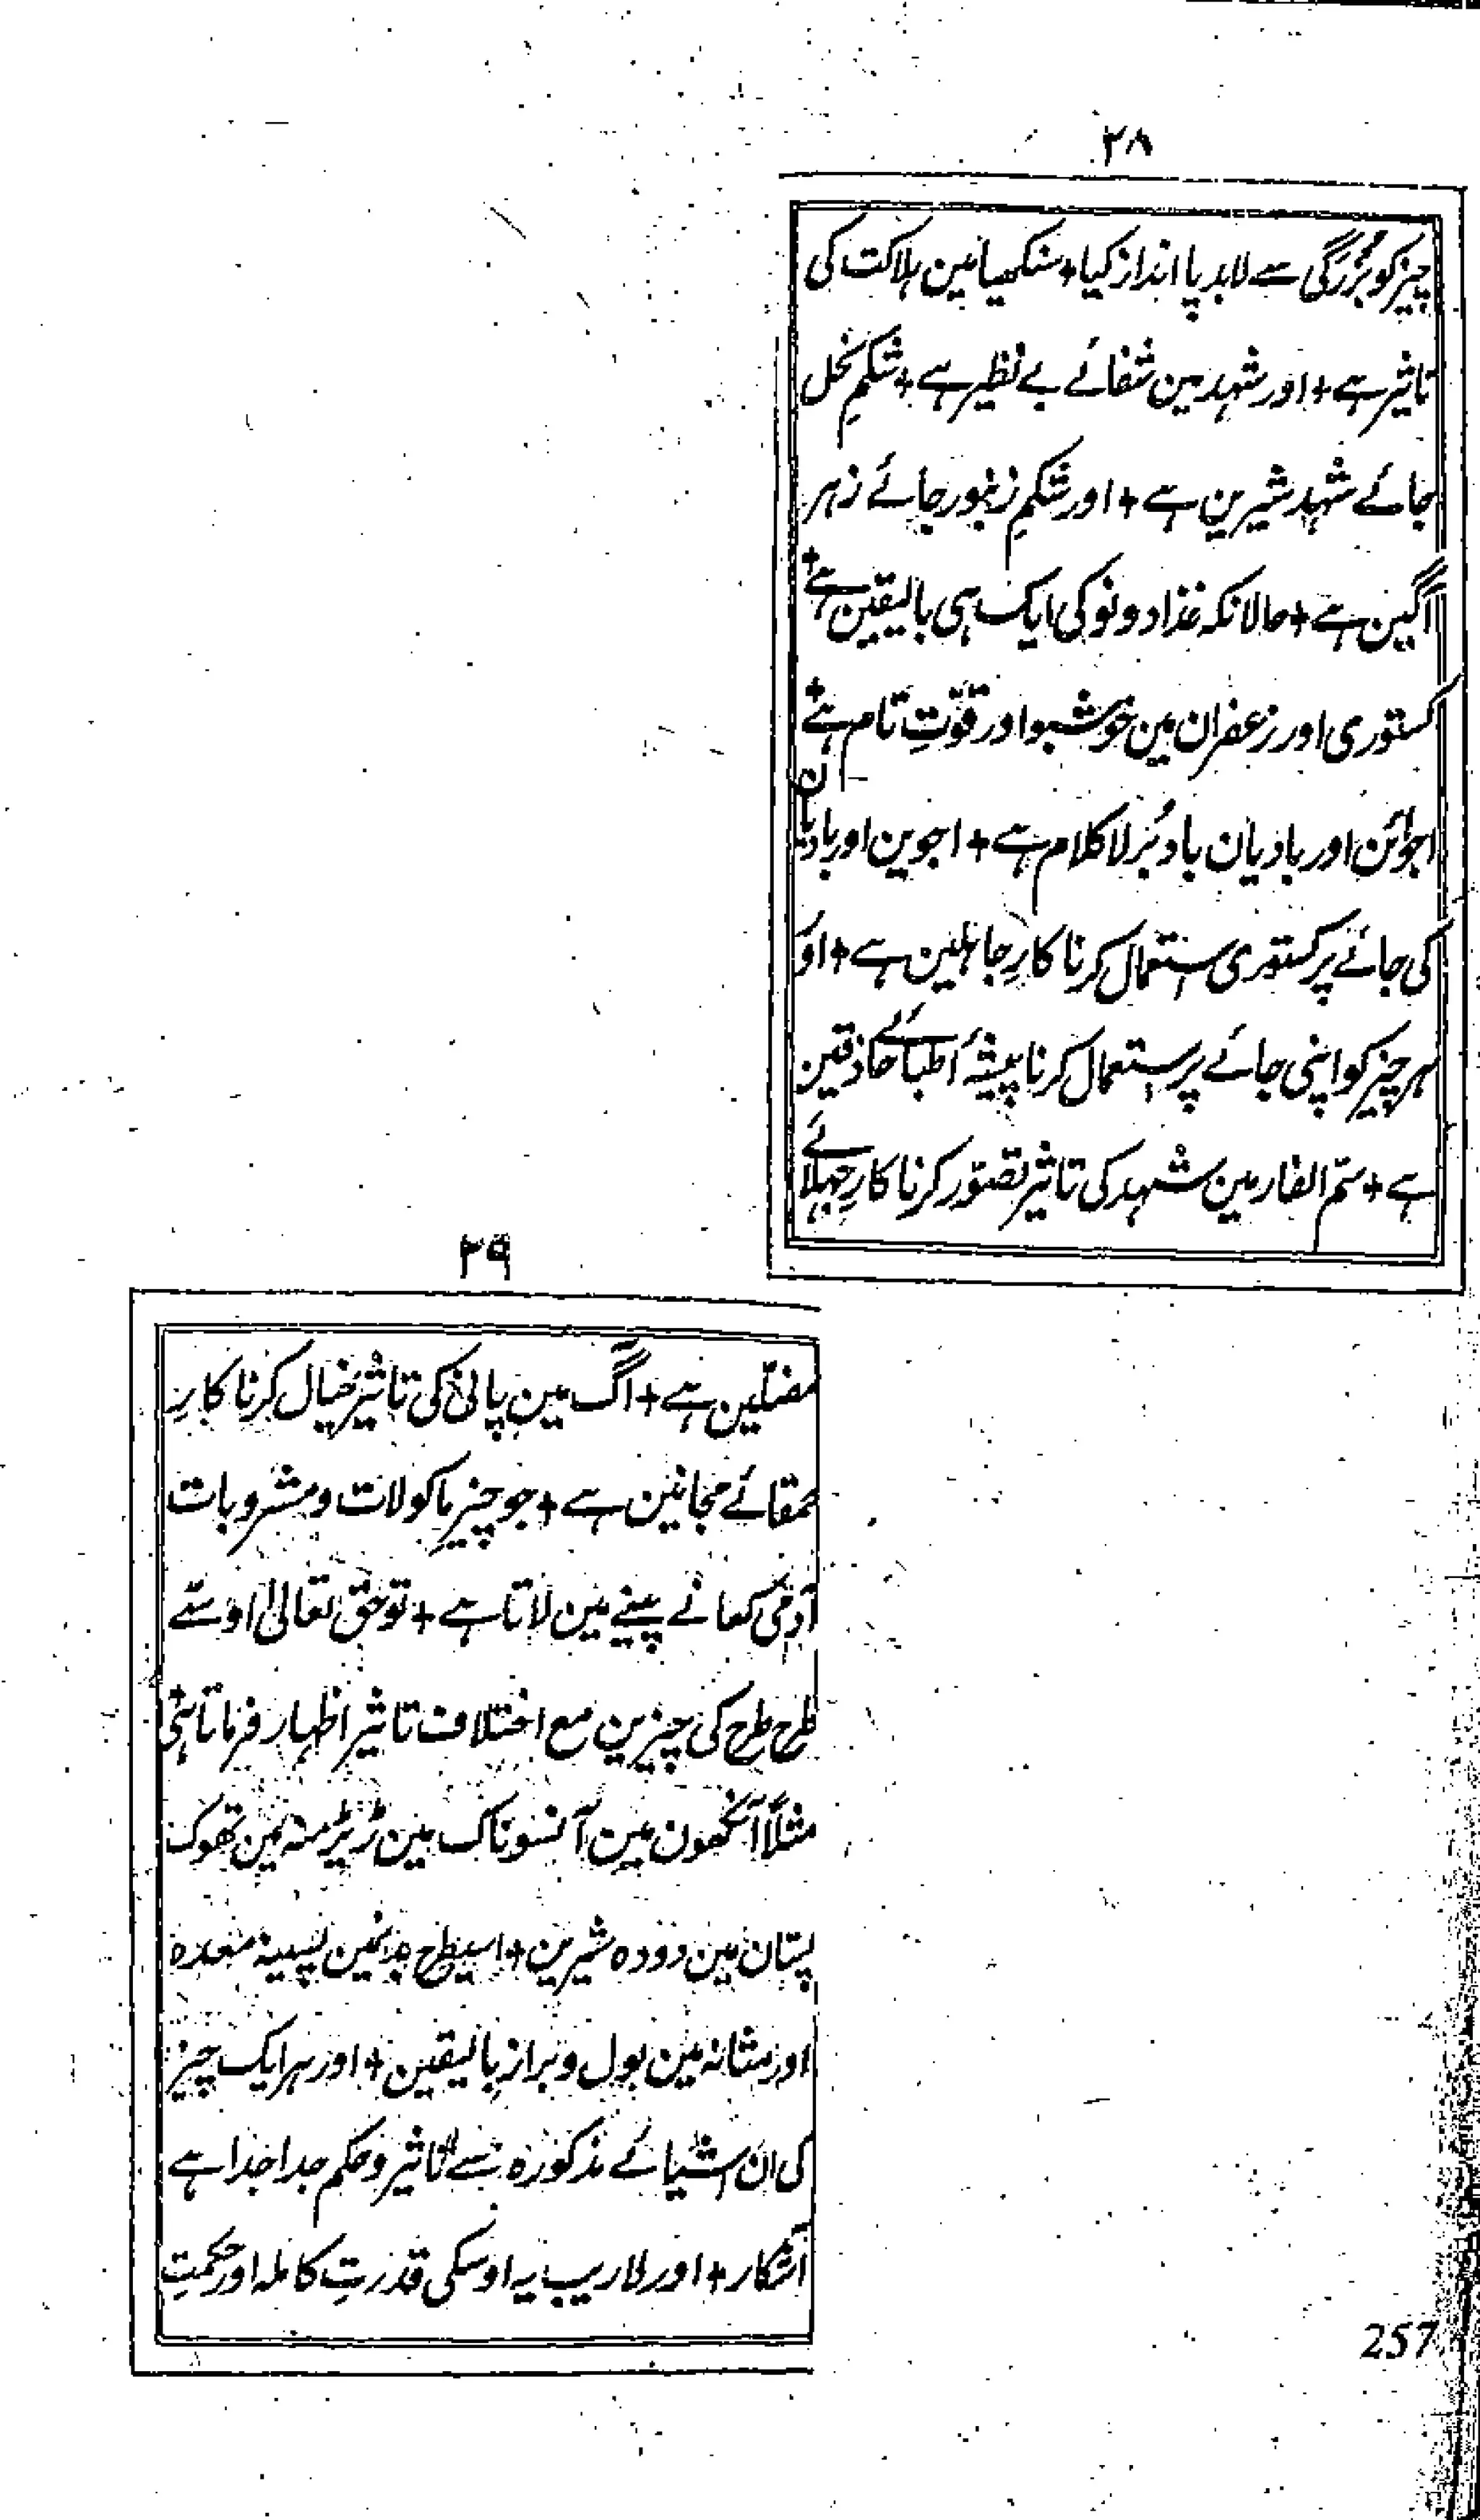 ۲۸
چیز کو بزرگی سے لابد پا انداز کیا + سنکھیا مین ہلاکت کی
تاثیر ہے + اور شہد مین شفائے بے نظیر ہے + شکمِ نحل
جائے شہد شیرین ہے + اور شکمِ زنبور جائے زہر
آگین ہے + حالانکہ غذا دونو کی ایک ہی بالیقین ہے +
کستوری اور زعفران مین خوشبو اور قوّتِ تام ہے +
اجوائن اور بادیان باد بُر لا کلام ہے + اجوین اور بادیان
کی جائے پر کستوری استعمال کرنا کارِ جاہلین ہے + اور
ہر چیز کو اپنی جائے پر استعمال کرنا پیشۂ اطبائے حاذقین
ہے + سمّ الفار مین شہد کی تاثیر تصوّر کرنا کارِ جہلائے
۲۹
مضلّین ہے + آگ مین پانی کی تاثیر خیال کرنا کارِ
حمقائے مجانین ہے + جو چیز ماکولات و مشروبات
آدمی کھانے پینے مین لاتا ہے + تو حق تعالیٰ اوسے
طرح طرح کی چیزین مع اختلاف تاثیر اظہار فرماتا ہی
مثلاً آنکھون مین آنسو ناک مین ریڑ منہ مین تھوک
پستان مین دودہ شیرین + اسیطرح بدنمین پسینہ معدہ
اور مثانہ مین بول و براز بالیقین + اور ہر ایک چیز
کی ان اشیائے مذکورہ سے تاثیر و حکم جدا جدا ہے
آشکار + اور لاریب یہ اوسکی قدرتِ کاملہ اور حکمتِ
257